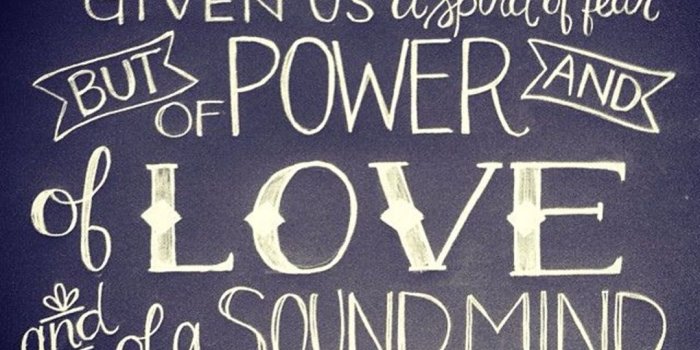 GIVEN US a spirit of fear
BUT OF POWER AND
of LOVE
and of a SOUND MIND